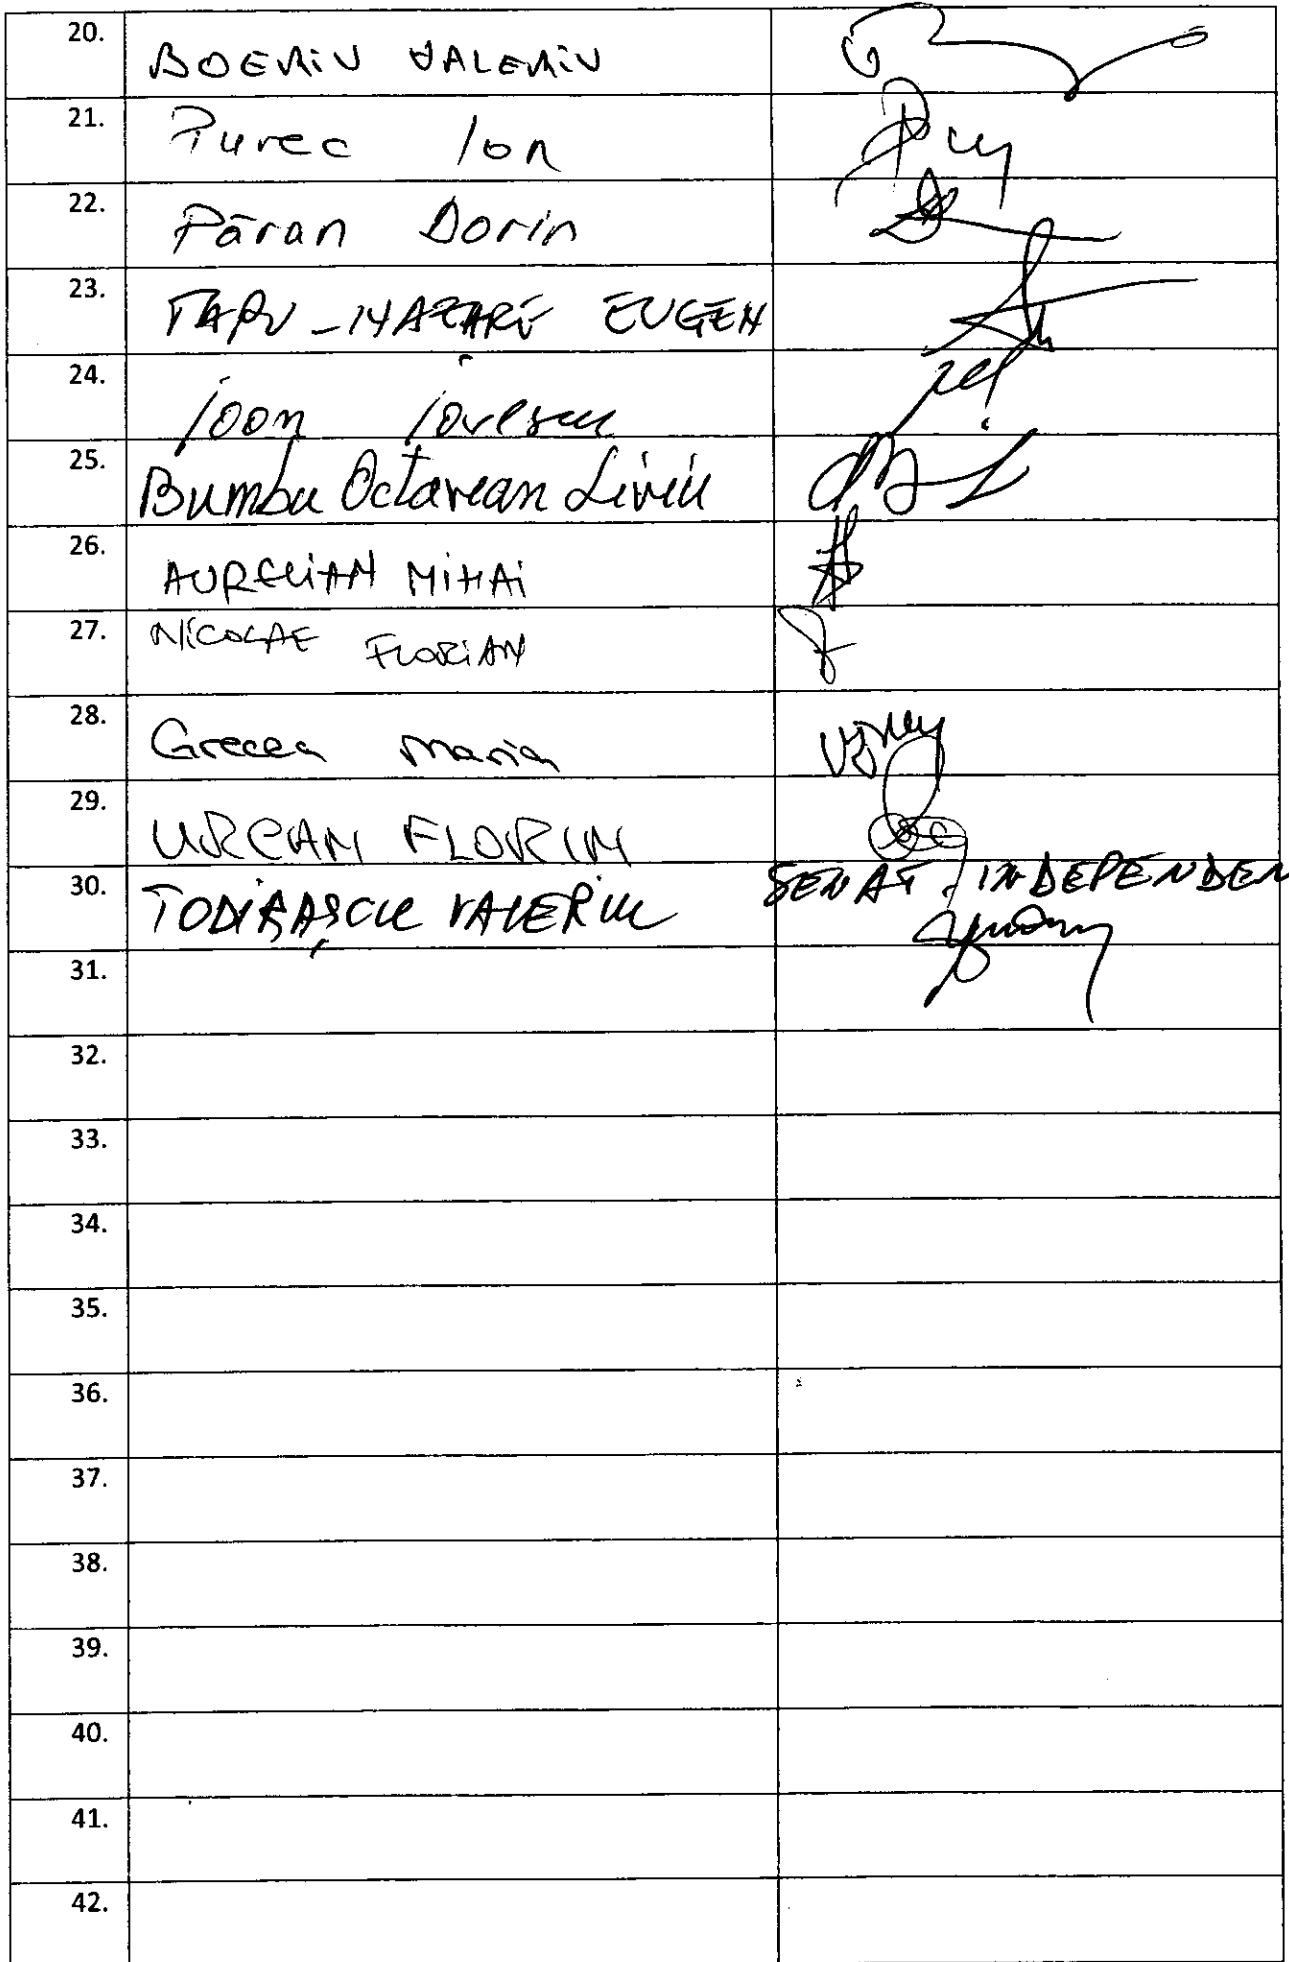 20. BOERIU VALERIU
21. Purec Ion
22. Păran Dorin
23. ȚAPU-NAZARE EUGEN
24. Ioan
25. Bumbu Octavian Liviu
26. AURELIAN MIHAI
27. NICOLAE FLORIAN
28. Grecea Maria
29. URCAN FLORIN
30. TODIRAȘCU VALERIU SENAT. INDEPENDEN
31.
32.
33.
34.
35.
36.
37.
38.
39.
40.
41.
42.